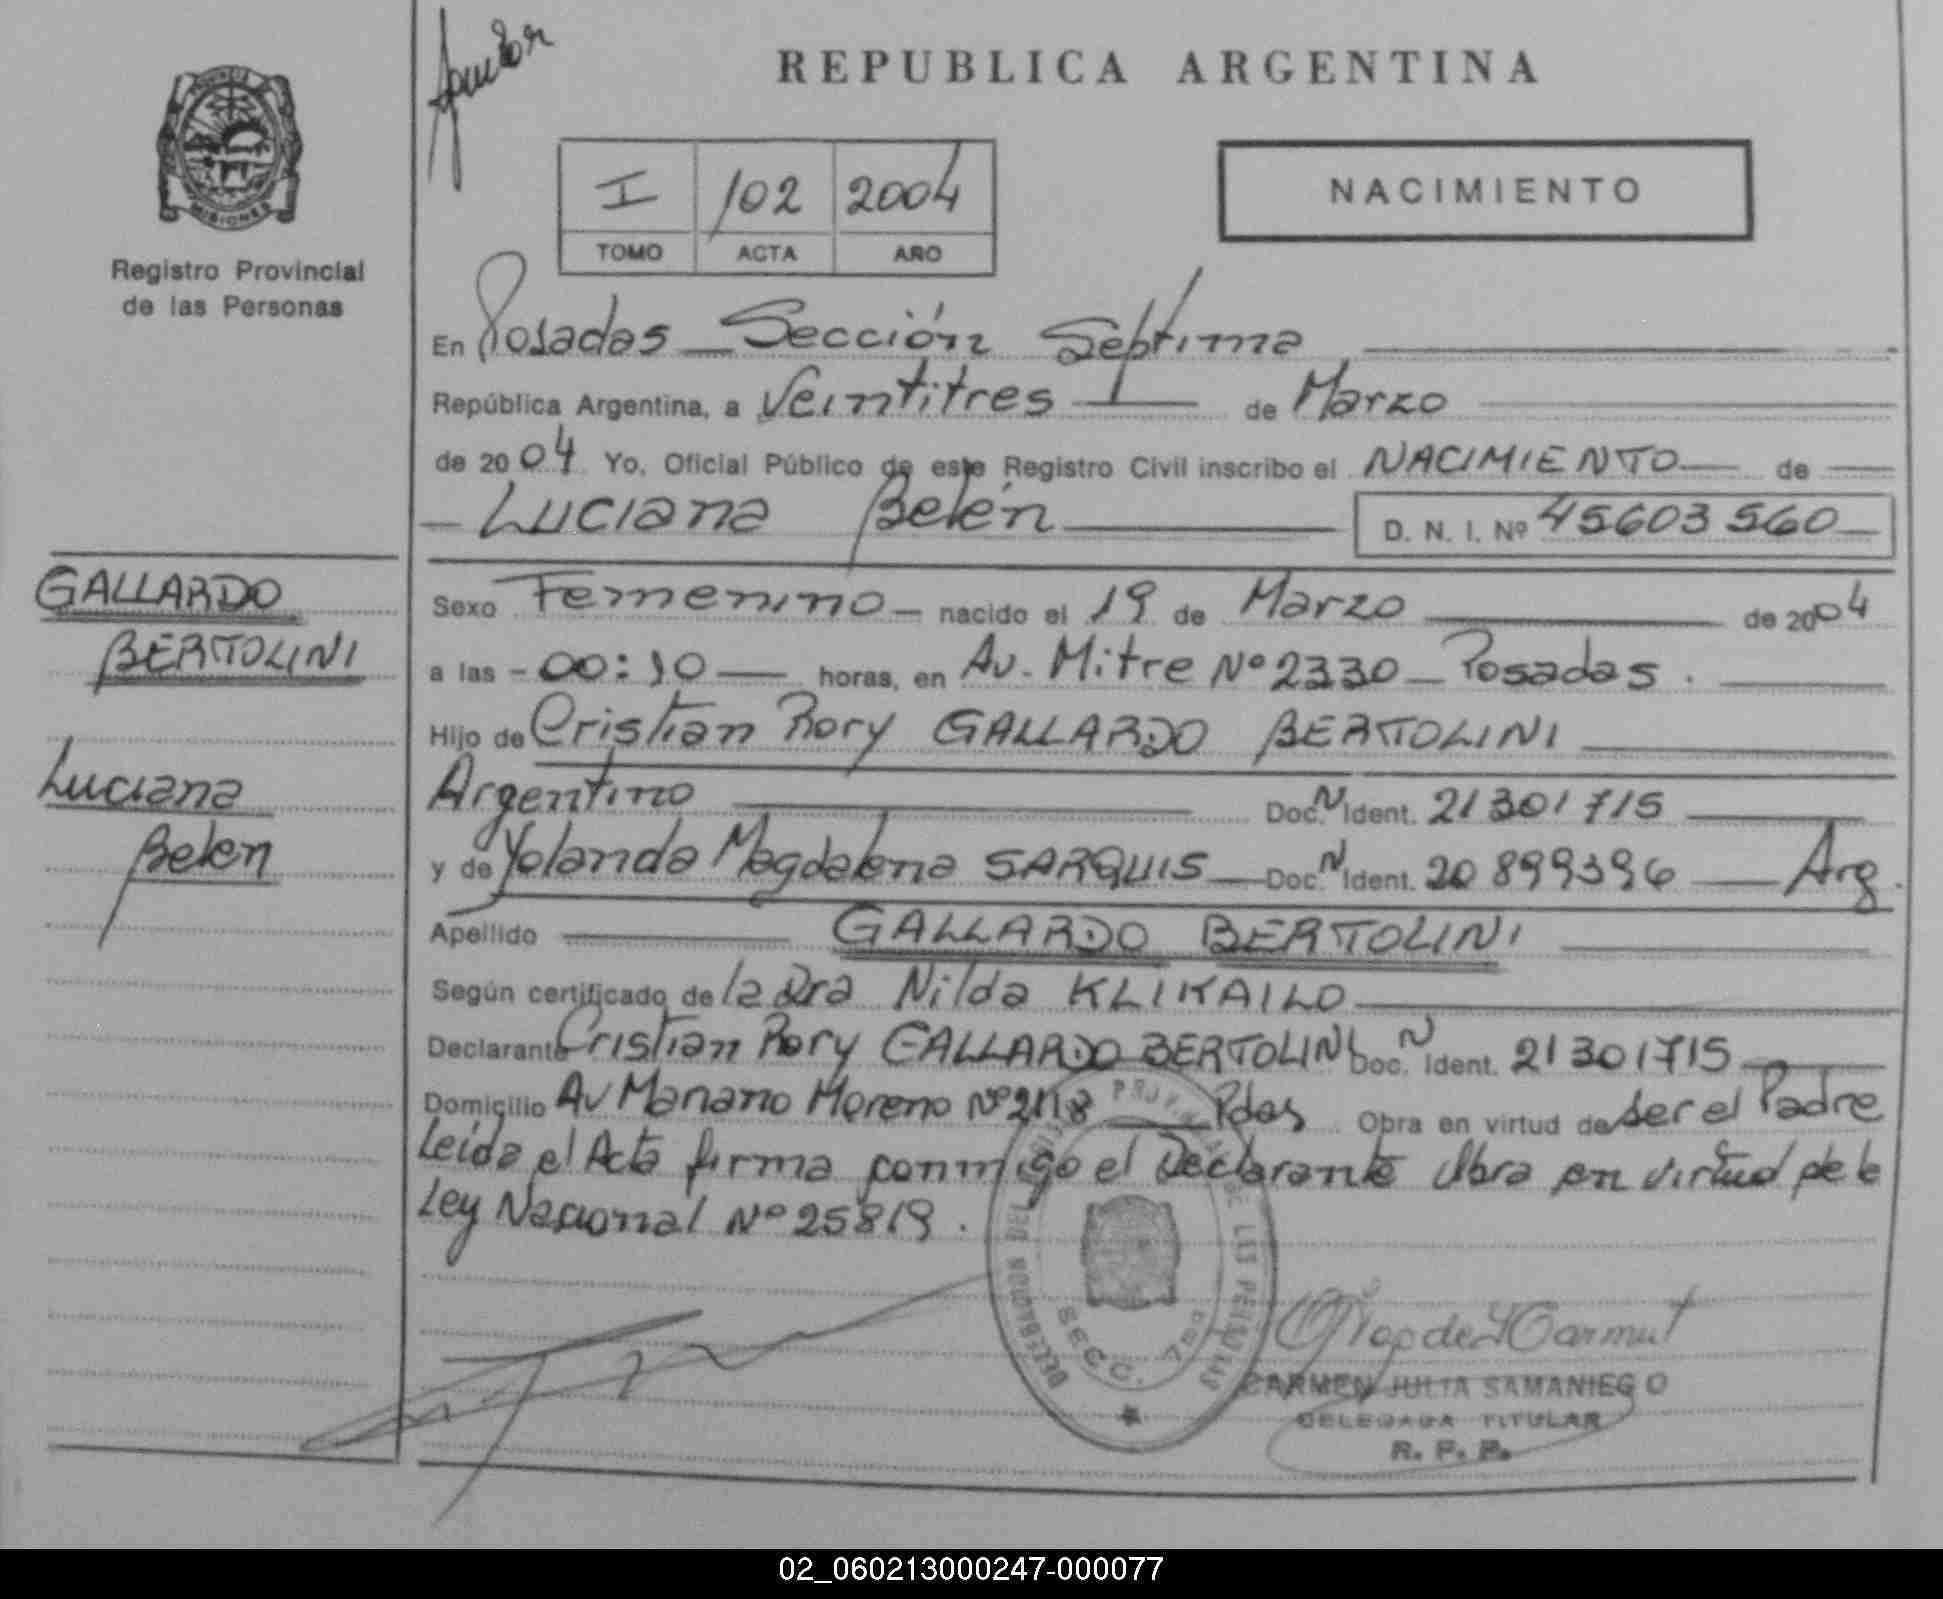 REPUBLICA ARGENTINA
PROVINCIA
MISIONES
Registro Provincial
de las Personas
I 102 2004
TOMO ACTA AÑO
NACIMIENTO
En Posadas Sección Séptima
República Argentina, a Veintitres de Marzo
de 2004 Yo, Oficial Público de este Registro Civil inscribo el NACIMIENTO de
Luciana Belén D. N. I. Nº 45603560
GALLARDO
BERTOLINI
Luciana
Belen
Sexo Femenino nacido el 19 de Marzo de 2004
a las 00:10 horas, en Av. Mitre Nº 2330 Posadas.
Hijo de Cristian Rory GALLARDO BERTOLINI
Argentino Doc. N Ident. 21301715
y de Yolanda Magdalena SARQUIS Doc. N Ident. 20899396 Arg.
Apellido GALLARDO BERTOLINI
Según certificado de la Dra Nilda KLIKAILO
Declarante Cristian Rory GALLARDO BERTOLINI Doc. N Ident. 21301715
Domicilio Av Mariano Moreno Nº 2118 Pdas Obra en virtud de ser el Padre
Leída el Acta firma conmigo el Declarante Obra en virtud de le
Ley Nacional Nº 25819.
SECC. 7ma
CARMEN JULIA SAMANIEGO
DELEGADA TITULAR
R. P. P.
02_060213000247-000077